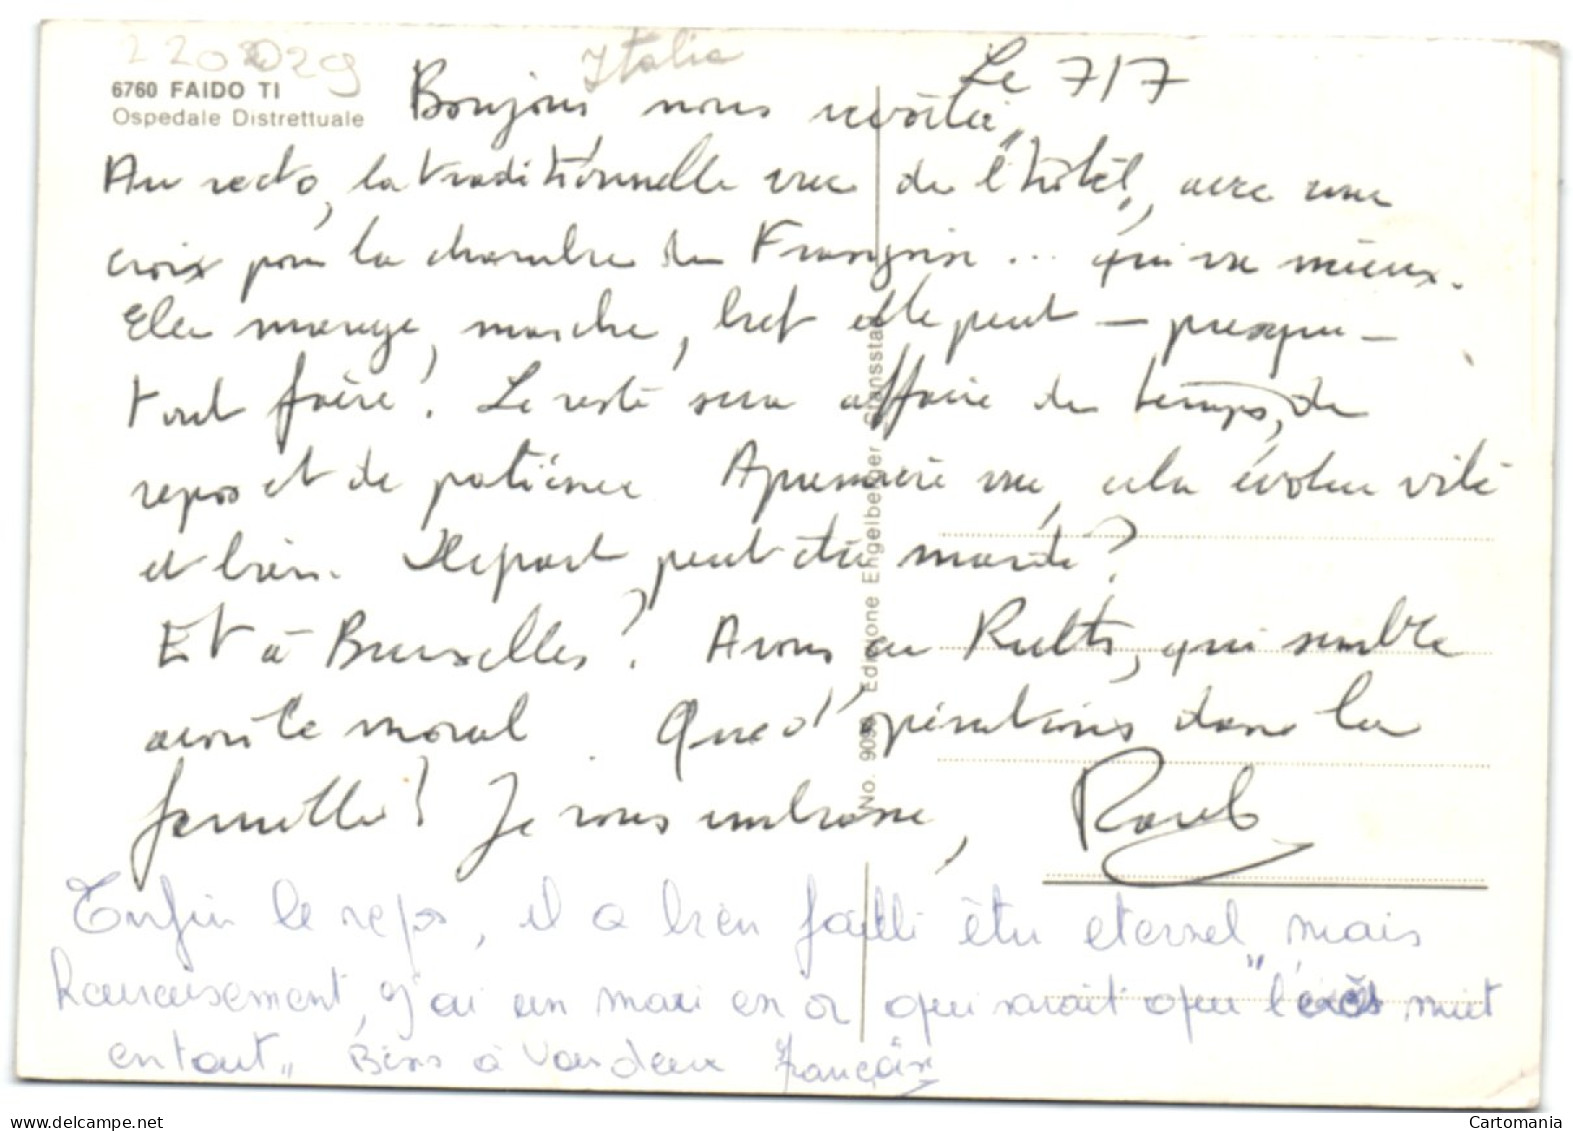 220829
Italia
Le 7/7
6760 FAIDO TI
Ospedale Distrettuale
Bonjour nous revoilà"
Au recto, la traditionnelle vue de l'hôtel", avec une
croix pour la chambre de Françoise... qui va mieux.
Elle mange, marche, bref elle peut - presque -
tout faire! Le reste sera affaire de temps, de
repos et de patience. A première vue, cela évolue vite
et bien. Départ peut être mardi?
Et à Bruxelles? Avons eu qui semble
avoir le moral. Que d'opérations dans la
famille! Je vous embrasse, Raoul
Enfin le repos, il a bien failli être eternel, mais
heureusement, j'ai un mari en or qui savait que "l' nuit
en tout" Bisous à vous deux Françoise
No. Edizione Engelberger Stansstad
delcampe.net
Cartomania